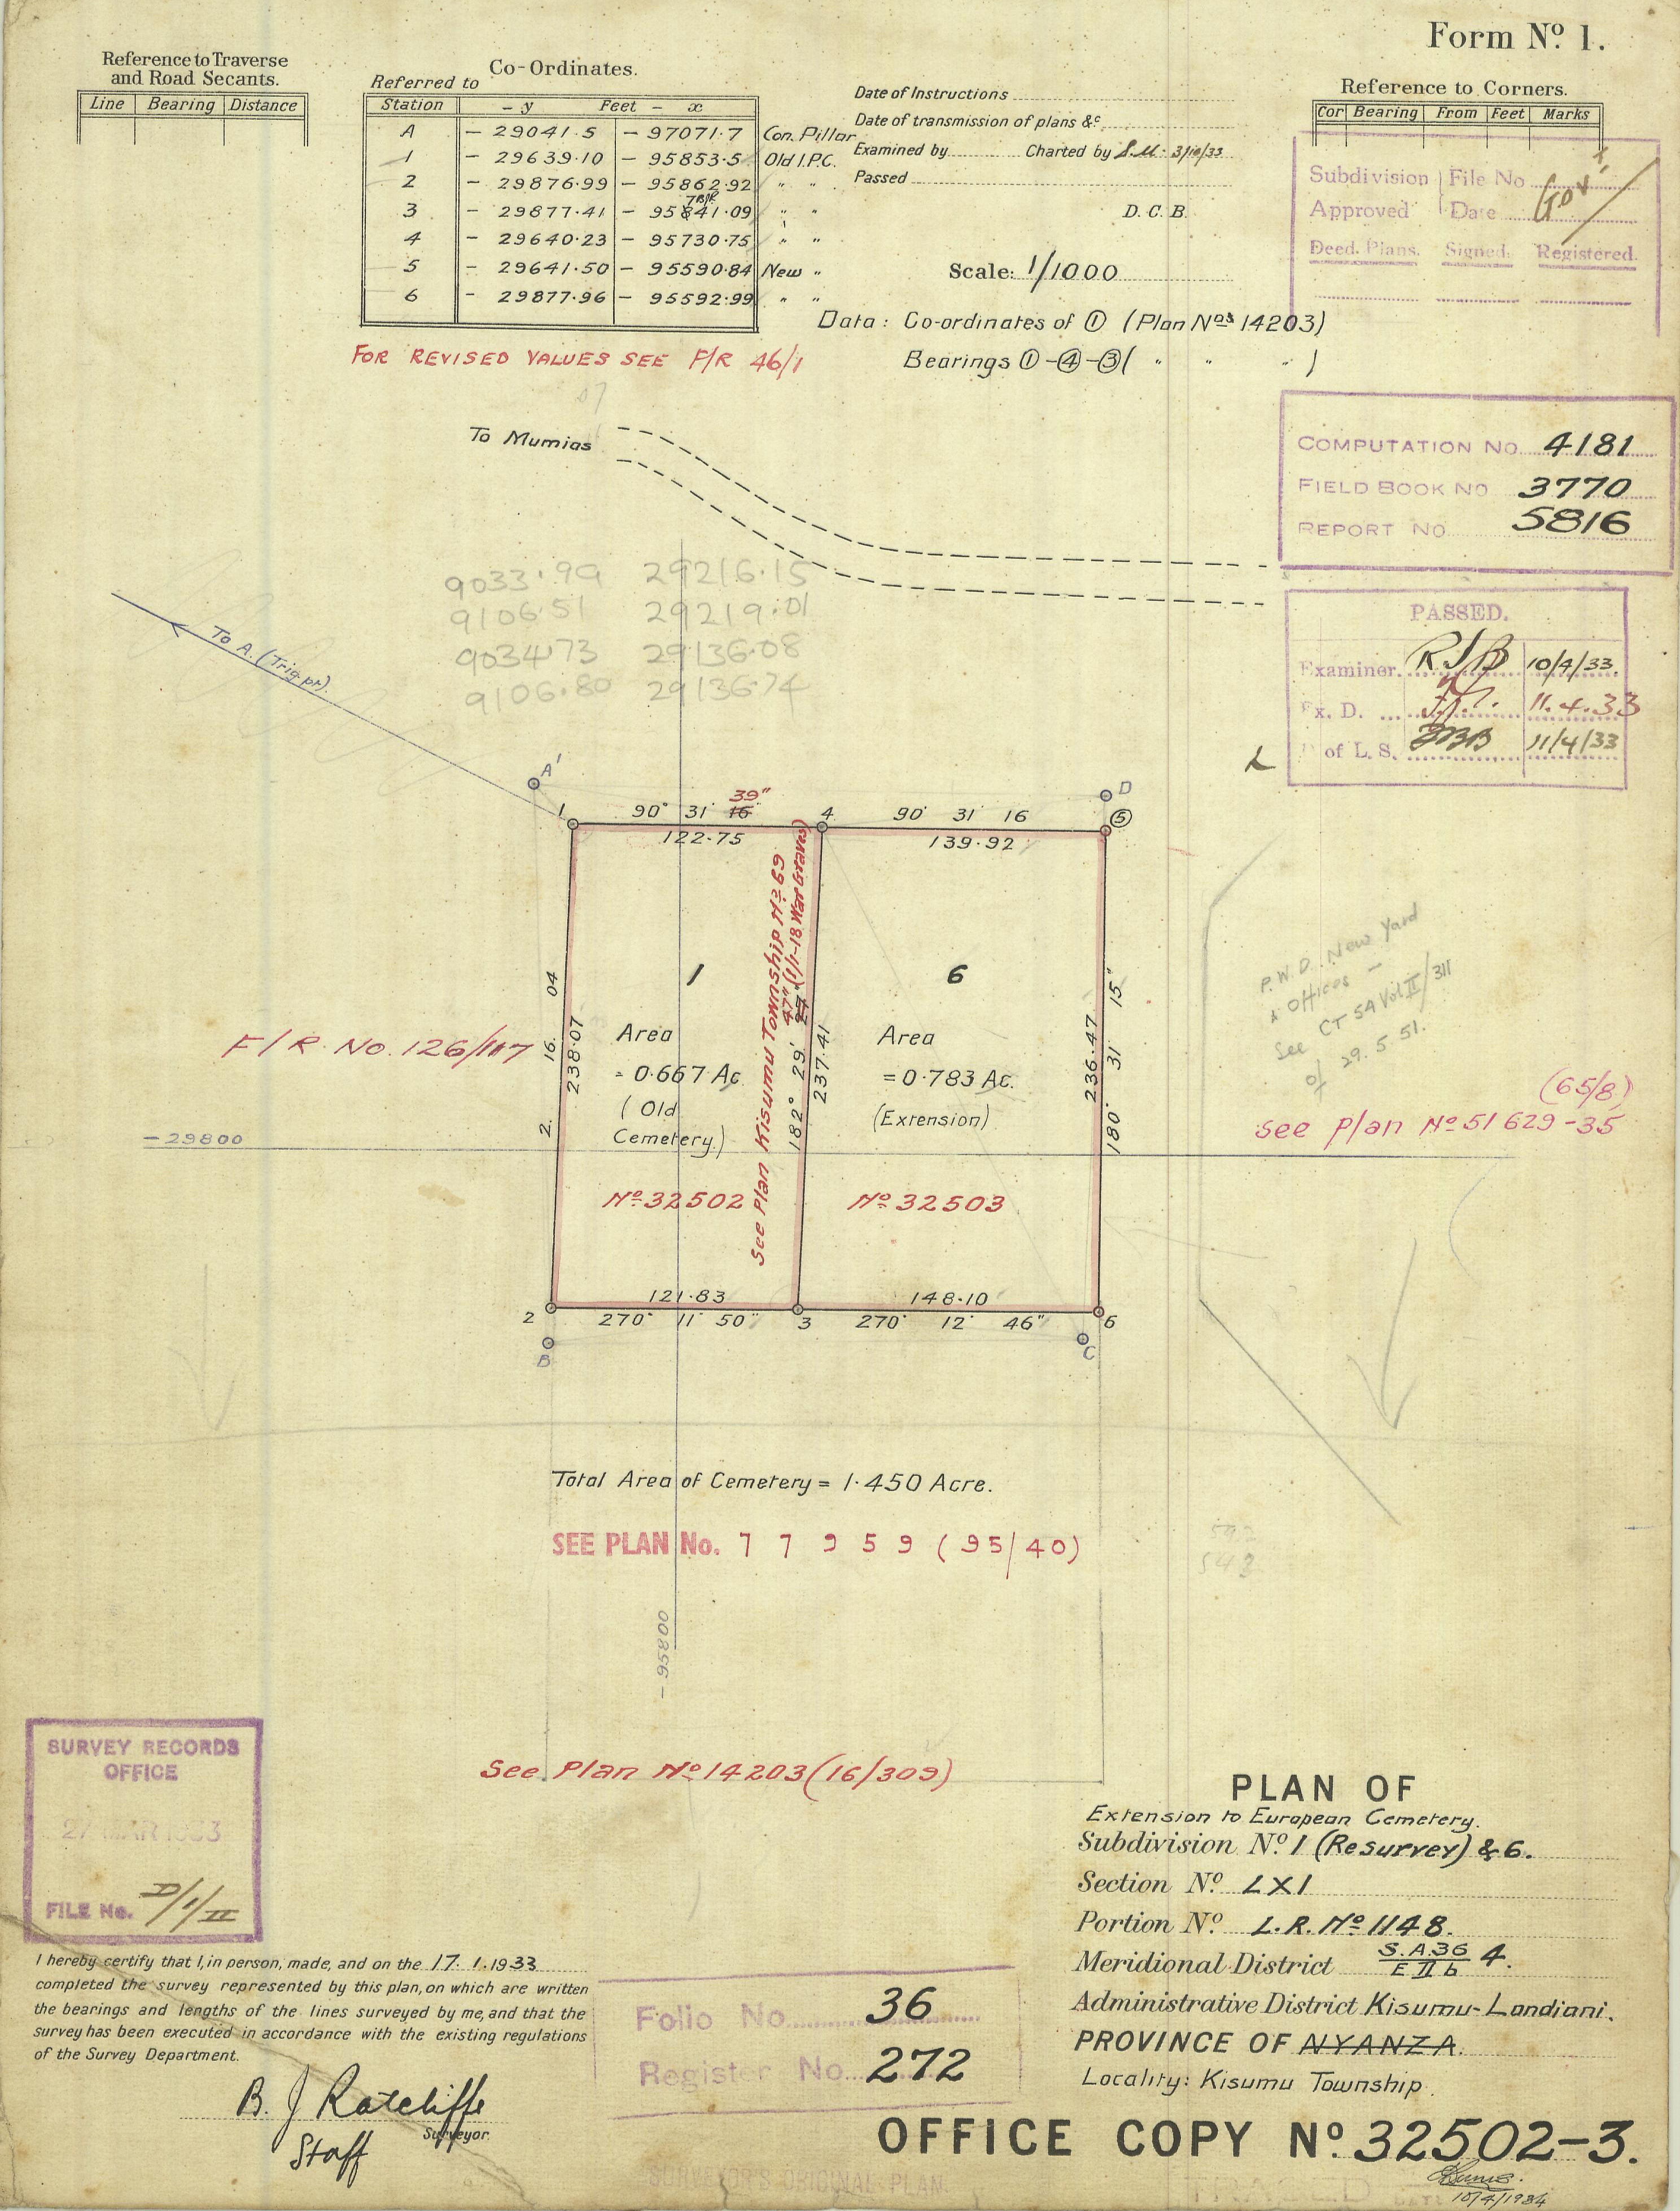 Form Nº 1.
Reference to Traverse
and Road Secants.
Line Bearing Distance
Co-Ordinates.
Referred to
Station - y Feet - x
A - 29041.5 - 97071.7 Con. Pillar
1 - 29639.10 - 95853.5 Old I.P.C.
2 - 29876.99 - 95862.92 " "
3 - 29877.41 - 95741.09 " "
4 - 29640.23 - 95730.75 " "
5 - 29641.50 - 95590.84 New "
6 - 29877.96 - 95592.99 " "
FOR REVISED VALUES SEE F/R 46/1
Date of Instructions
Date of transmission of plans &c
Examined by Charted by S.M. 3/10/33
Passed
D. C. B.
Scale: 1/1000
Data: Co-ordinates of ① (Plan Nos 14203)
Bearings ①-④-③( " " " )
Reference to Corners.
Cor Bearing From Feet Marks
Subdivision File No Gov't
Approved Date
Deed. Plans. Signed. Registered.
COMPUTATION NO. 4181
FIELD BOOK NO 3770
REPORT NO 5816
PASSED.
Examiner. RJB 10/4/33.
Ex. D. 11.4.33
of L. S. 11/4/33
To Mumias
9033.99 29216.15
9106.51 29219.01
9034.73 29136.08
9106.80 29136.74
To A. (Trig.pt).
A'
D
1
90° 31' 16 39"
4
90° 31' 16
⑤
122.75
139.92
1
6
2. 16. 04
238.07
Area
= 0.667 Ac.
( Old
Cemetery.)
See Plan Kisumu Township Nº 69
(1/1-18 War Graves)
182° 29' 27" 47"
237.41
Area
= 0.783 Ac.
(Extension)
236.47
180° 31' 15"
F/R. No. 126/117
P.W.D. New Yard
& Offices -
See CT 5A Vol II/311
of 29.5.51.
(65/8)
See Plan Nº 51629-35
- 29800
Nº 32502
Nº 32503
121.83
148.10
2
270° 11' 50"
3
270° 12' 46"
6
B
C
Total Area of Cemetery = 1.450 Acre.
SEE PLAN No. 7 7 9 5 9 ( 95/40)
592
543
- 95800
See Plan Nº 14203 (16/309)
SURVEY RECORDS
OFFICE
27 MAR 1933
FILE No. D/1/II
I hereby certify that I, in person, made, and on the 17. 1. 1933
completed the survey represented by this plan, on which are written
the bearings and lengths of the lines surveyed by me, and that the
survey has been executed in accordance with the existing regulations
of the Survey Department.
B. J Ratcliffe
Surveyor.
Staff
Folio No. 36
Register No. 272
PLAN OF
Extension to European Cemetery.
Subdivision Nº 1 (Resurvey) & 6.
Section Nº LXI
Portion Nº L.R. Nº 1148.
Meridional District S.A.36 / E II b 4.
Administrative District Kisumu-Londiani.
PROVINCE OF NYANZA.
Locality: Kisumu Township.
OFFICE COPY Nº 32502-3.
10/4/1934
SURVEYOR'S ORIGINAL PLAN.